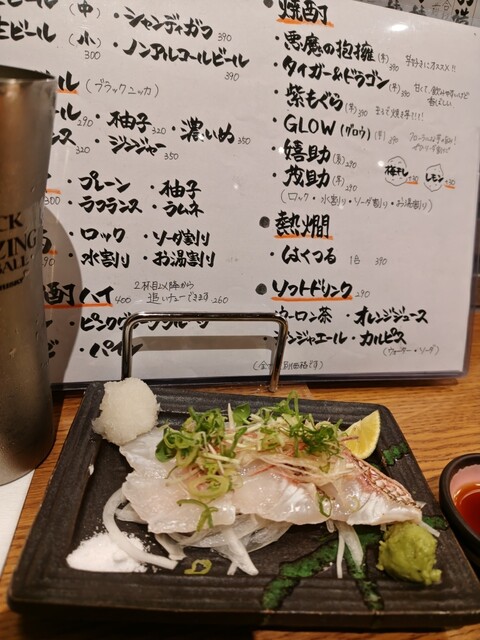 ビール (中) ・シャンディガフ 390
ビール (小) 300 ・ノンアルコールビール 390
ル (ブラックニッカ)
290 ・柚子 320 ・濃いめ 350
ンス 320 ・ジンジャー 350
300 ・プレーン ・柚子
・ラフランス ・ラムネ
・ロック ・ソーダ割り
・水割り ・お湯割り
酎ハイ 400 2杯目以降から
追いチューできます 260
・ピンクグレープフルーツ
・パイン
焼酎
・悪魔の抱擁 (芋) 390 芋好きにオススメ!!
・タイガー&ドラゴン (芋) 390
・紫もぐら (芋) 390
・GLOW (グロウ) (芋) 390
・嬉助 (麦) 290
・茂助 (芋) 290 梅干し +30 レモン +30
(ロック・水割り・ソーダ割り・お湯割り)
熱燗
・はくつる 1合 390
ソフトドリンク 290
ウーロン茶 ・オレンジジュース
ジンジャエール ・カルピス
(ウォーター・ソーダ)